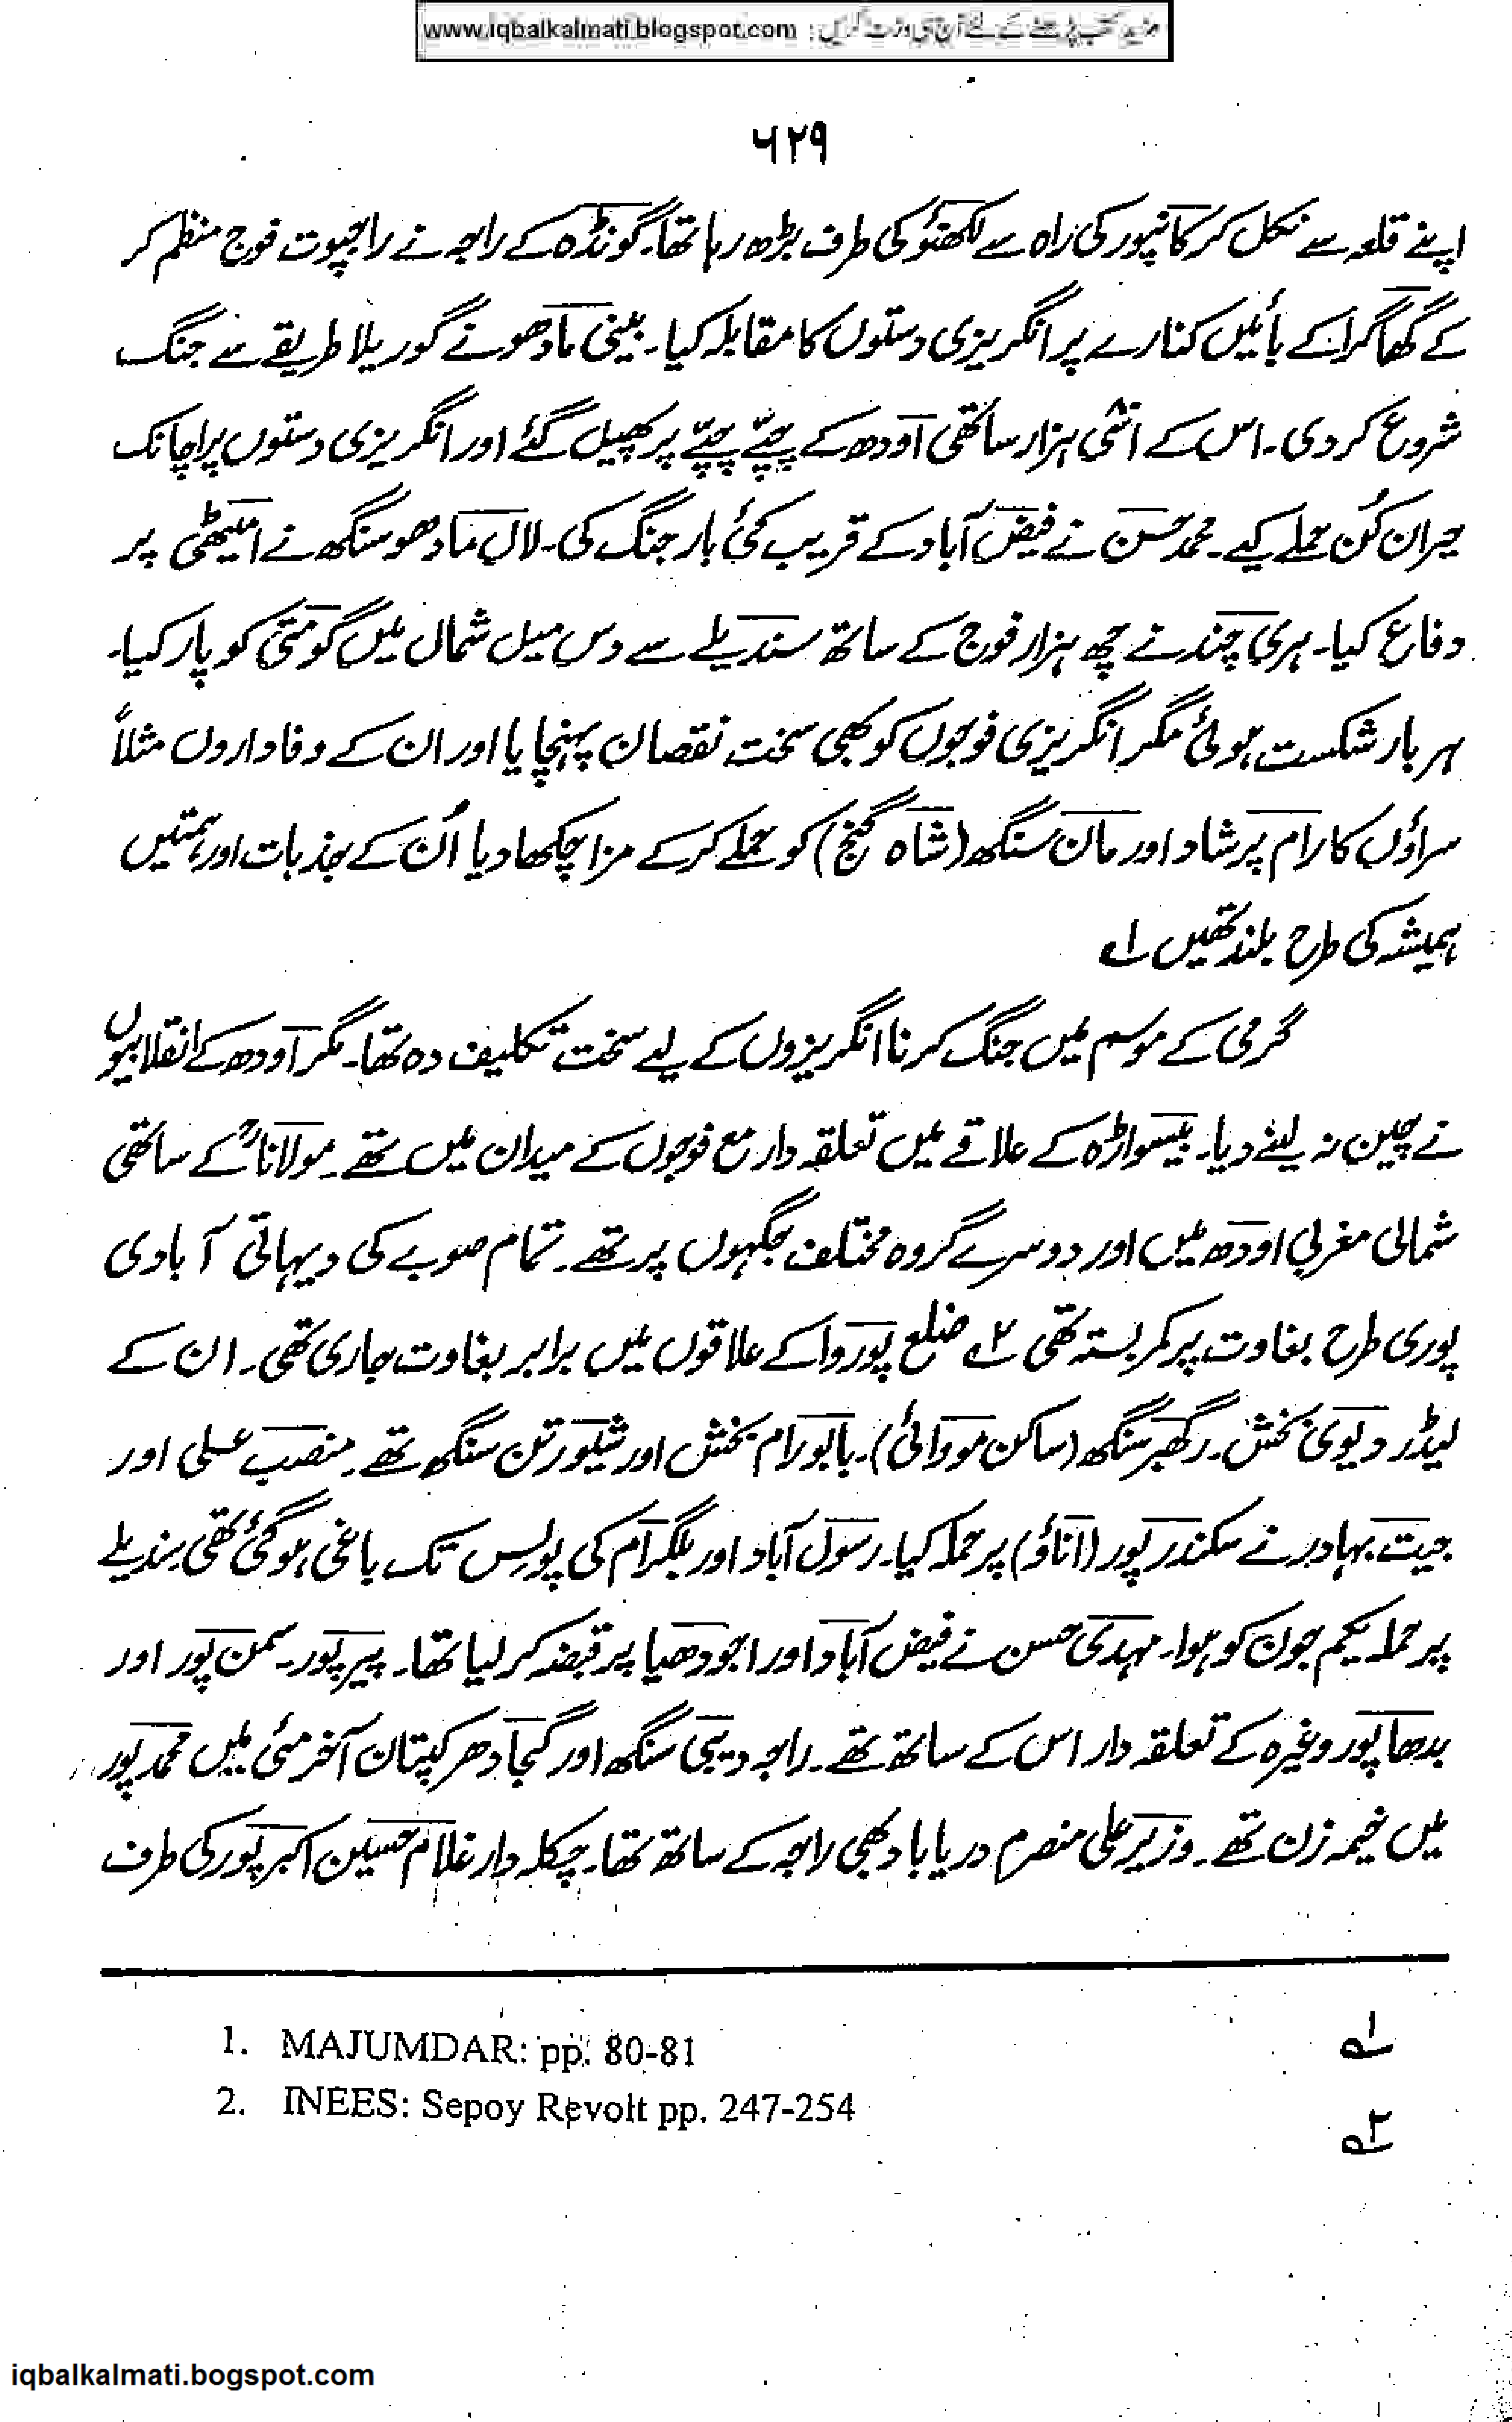 مزید کتب پڑھنے کے لئے آج ہی وزٹ کریں : www.iqbalkalmati.blogspot.com
۶۲۹
اپنے قلعہ سے نکل کر کانپور کی راہ سے لکھنؤ کی طرف بڑھ رہا تھا۔ گونڈہ کے راجہ نے راجپوت فوج منظم کر
کے گھاگرا کے بائیں کنارے پر انگریزی دستوں کا مقابلہ کیا۔ بینی مادھو نے گوریلا طریقے سے جنگ
شروع کر دی۔ اس کے اسّی ہزار ساتھی اودھ کے چپّے چپّے پر پھیل گئے اور انگریزی دستوں پر اچانک
حیران کُن حملے کیے۔ محمد حسن نے فیض آباد کے قریب کئی بار جنگ کی۔ لال مادھو سنگھ نے امیٹھی پر
دفاع کیا۔ ہری چند نے چھ ہزار فوج کے ساتھ سندیلے سے دس میل شمال میں گومتی کو پار کیا۔
ہر بار شکست ہوئی مگر انگریزی فوجوں کو بھی سخت نقصان پہنچایا اور ان کے وفاداروں مثلاً
سراؤں کا رام پرشاد اور مان سنگھ (شاہ گنج) کو حملے کر کے مزا چکھا دیا اُن کے جذبات اور ہمتیں
ہمیشہ کی طرح بلند تھیں ۱ے
گرمی کے موسم میں جنگ کرنا انگریزوں کے لیے سخت تکلیف دہ تھا۔ مگر اودھ کے انقلابیوں
نے چین نہ لینے دیا۔ بیسواڑہ کے علاقے میں تعلقہ دار مع فوجوں کے میدان میں تھے۔ مولاناؒ کے ساتھی
شمالی مغربی اودھ میں اور دوسرے گروہ مختلف جگہوں پر تھے۔ تمام صوبے کی دیہاتی آبادی
پوری طرح بغاوت پر کمر بستہ تھی ۲ے ضلع پوروا کے علاقوں میں برابر بغاوت جاری تھی۔ ان کے
لیڈر دیوی بخش۔ رگھبر سنگھ (ساکن مووائی)۔ بابو رام بخش اور شیورتن سنگھ تھے۔ منصب علی اور
جیت بہادر نے سکندر پور (اناؤ) پر حملہ کیا۔ رسول آباد اور بلگرام کی پولس تک باغی ہو گئی تھی۔ سندیلے
پر حملہ یکم جون کو ہوا۔ مہدی حسن نے فیض آباد اور اجودھیا پر قبضہ کر لیا تھا۔ پیرپور۔ سمن پور اور
بدھاپور وغیرہ کے تعلقہ دار اس کے ساتھ تھے۔ راجہ دیبی سنگھ اور گجادھر کپتان آخر مئی میں محمد پور
میں خیمہ زن تھے۔ وزیر علی منصرم دریاباد بھی راجہ کے ساتھ تھا۔ چکلہ دار غلام حسین اکبر پور کی طرف
1. MAJUMDAR: pp. 80-81 ۱ے
2. INEES: Sepoy Revolt pp. 247-254 ۲ے
iqbalkalmati.bogspot.com